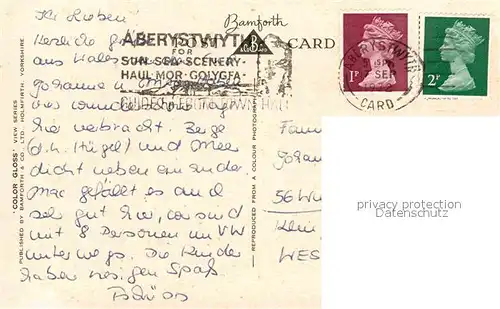 Ihr Lieben
Bamforth
POST CARD
ABERYSTWYTH
FOR
SUN·SEA·SCENERY·
HAUL·MOR·GOLYGFA·
Herzliche
aus Wales
ABERYSTWYTH
SEP
CARD
1P
2P
hier verbracht. Berge
(d.h. Hügel) und Meer
dicht nebeneinander
Mac gefällt es auch
sehr gut hier, wir sind
mit 8 Personen im VW
unterwegs. Die Kinder
haben riesigen Spaß.
Tschüss
Fam
Johan
56 Wu
WES
"COLOR GLOSS" VIEW SERIES
PUBLISHED BY BAMFORTH & CO., LTD., HOLMFIRTH, YORKSHIRE
REPRODUCED FROM A COLOUR PHOTOGRAPH
privacy protection
Datenschutz